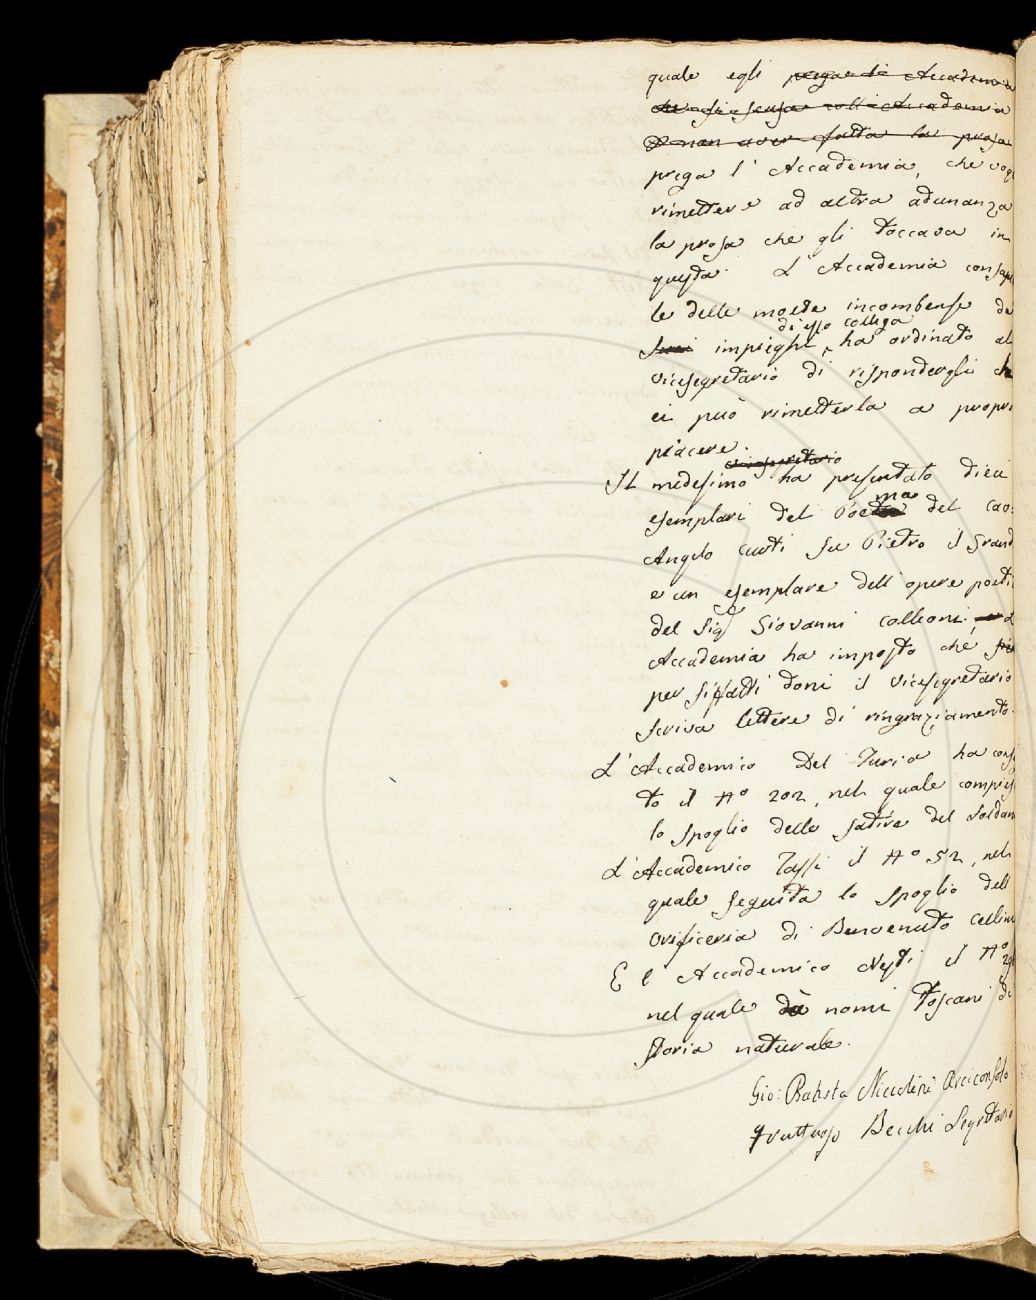 quale egli prega la Accademia
che si scusa coll'Accademia
Di non aver fatta la prosa
prega l'Accademia, che vog
rimettere ad altra adunanza
la prosa che gli toccava in
questa. L'Accademia consape
le delle molte incombense de
di esso collega
suoi impieghi ha ordinato al
vicesegretario di rispondergli ch
ei può rimetterla a propri
piacere.
vicesegretario
Il medesimo ha presentato dieci
ma
esemplari del Poe del cav:
Angelo Curti su Pietro il Grand
e un esemplare dell'opere poeti
del Sig Giovanni Colleoni; L
Accademia ha imposto che
per siffatti doni il vicesegretario
scriva lettere di ringraziamento.
L'Accademico Del Furia ha cons
to il No 202, nel quale compies
lo spoglio delle satire del Soldan
L'Accademico Tassi il No 52, nel
quale seguita lo spoglio dell
orificeria di Benvenuto Cellin
E l'Accademico Nesti il No
nel quale dà nomi toscani di
storia naturale.
Gio: Batista Niccolini Arciconsolo
Fruttuoso Becchi Segretario